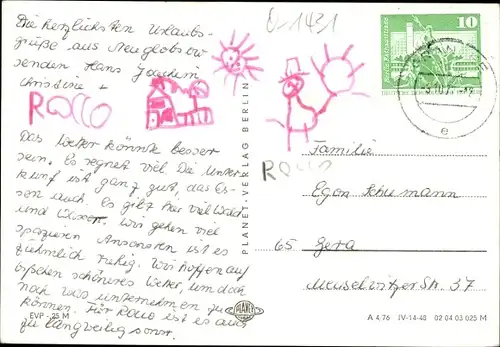 Die herzlichsten Urlaubs-
grüße aus Neuglobsow
senden Hans Joachim
Christine +
ROCCO
Das Wetter könnte besser
sein. Es regnet viel. Die Unter-
kunft ist ganz gut, das Es-
sen auch. Es gibt hier viel Wald
und Wasser. Wir gehen viel
spazieren. Ansonsten ist es
ziehmlich ruhig. Wir hoffen auf
bißchen schöneres Wetter, um doch
noch was unternehmen zu
können. Für Rocco ist es auch
zu langweilig sonst.
EVP -,25 M
PLANET
PLANET-VERLAG BERLIN
0-1431
10
Rocco
Familie
Egon Schumann
65 Gera
Meuselwitzer Str. 37
e
A 4,76 IV-14-48 02 04 03 025 M